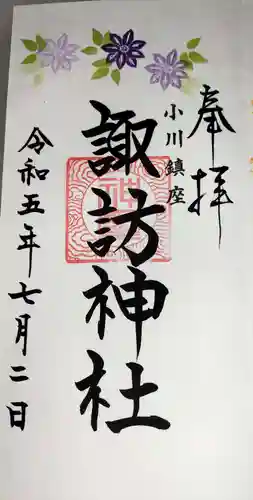 奉拝
小川鎮座
諏訪神社
令和五年七月二日